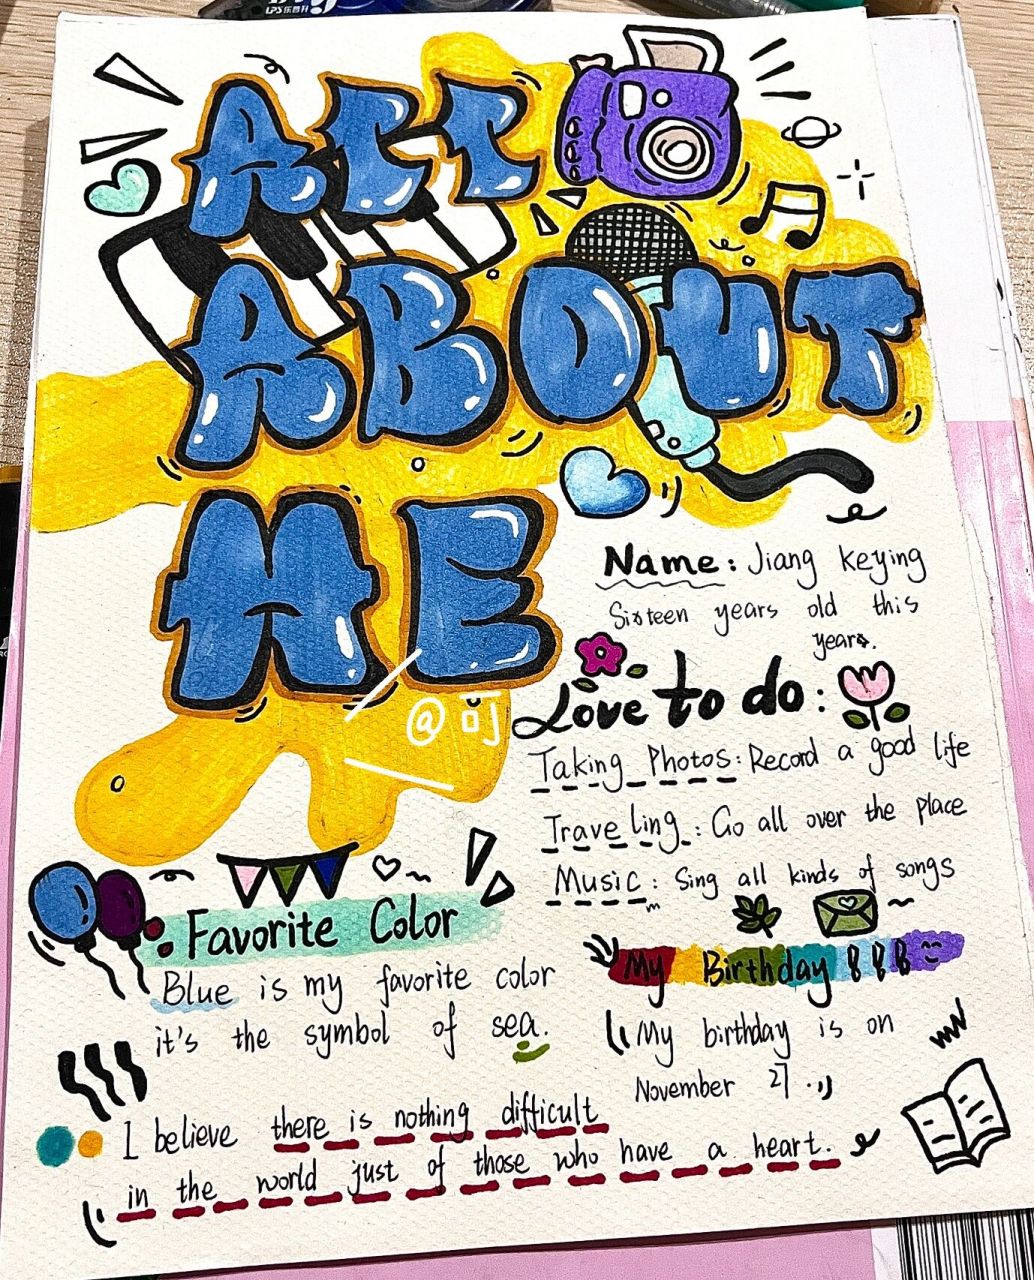 LPS乐普升
ALL
ABOUT
ME
@可
Name: Jiang Keying
Sixteen years old this
years.
Love to do:
Taking Photos: Record a good life
Traveling: Go all over the place
Music: Sing all kinds of songs
Favorite Color
Blue is my favorite color
it's the symbol of sea.
My Birthday
My birthday is on
November 27
I believe there is nothing difficult
in the world just of those who have a heart.